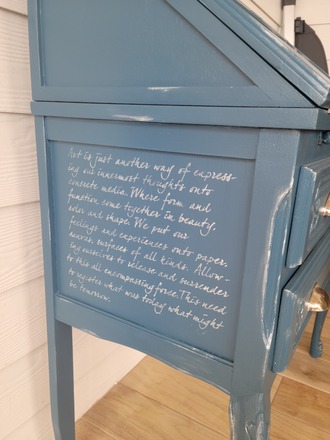 Art is just another way of express-
ing our innermost thoughts onto
concrete media. Where form and
function come together in beauty,
color and shape. We put our
feelings and experiences onto paper,
canvas, surfaces of all kinds. Allow-
ing ourselves to release and surrender
to this all encompassing force. This need
to register what was today what might
be tomorrow.